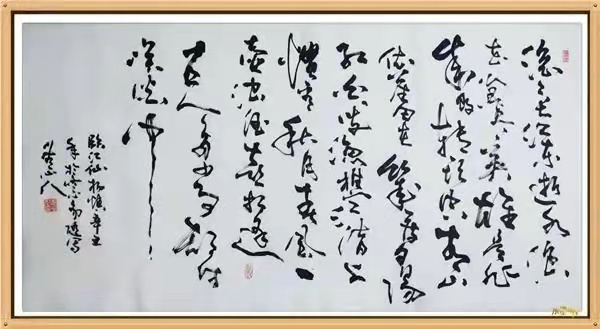 滚滚长江东逝水浪
花淘尽英雄是非
成败转头空青山
依旧在几度夕阳
红白发渔樵江渚上
惯看秋月春风一
壶浊酒喜相逢
古今多少事都付
笑谈中
临江仙杨慎辛丑
年於
山人